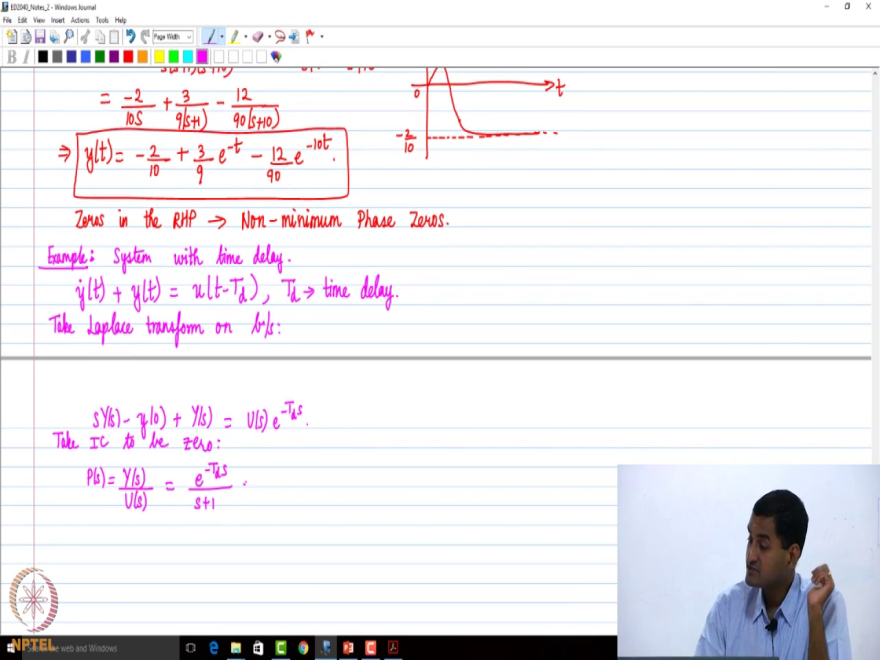 ED2040_Notes_2 - Windows Journal
File Edit View Insert Actions Tools Help
Page Width
B I
= -2/10s + 3/9(s+1) - 12/90(s+10)
0
t
-2/10
⇒ y(t) = -2/10 + 3/9 e^-t - 12/90 e^-10t.
Zeros in the RHP → Non-minimum Phase Zeros.
Example: System with time delay.
ẏ(t) + y(t) = u(t-T_d), T_d → time delay.
Take Laplace transform on b/s:
sY(s) - y(0) + Y(s) = U(s) e^-T_d s.
Take IC to be zero:
P(s) = Y(s)/U(s) = e^-T_d s/s+1.
NPTEL
the web and Windows